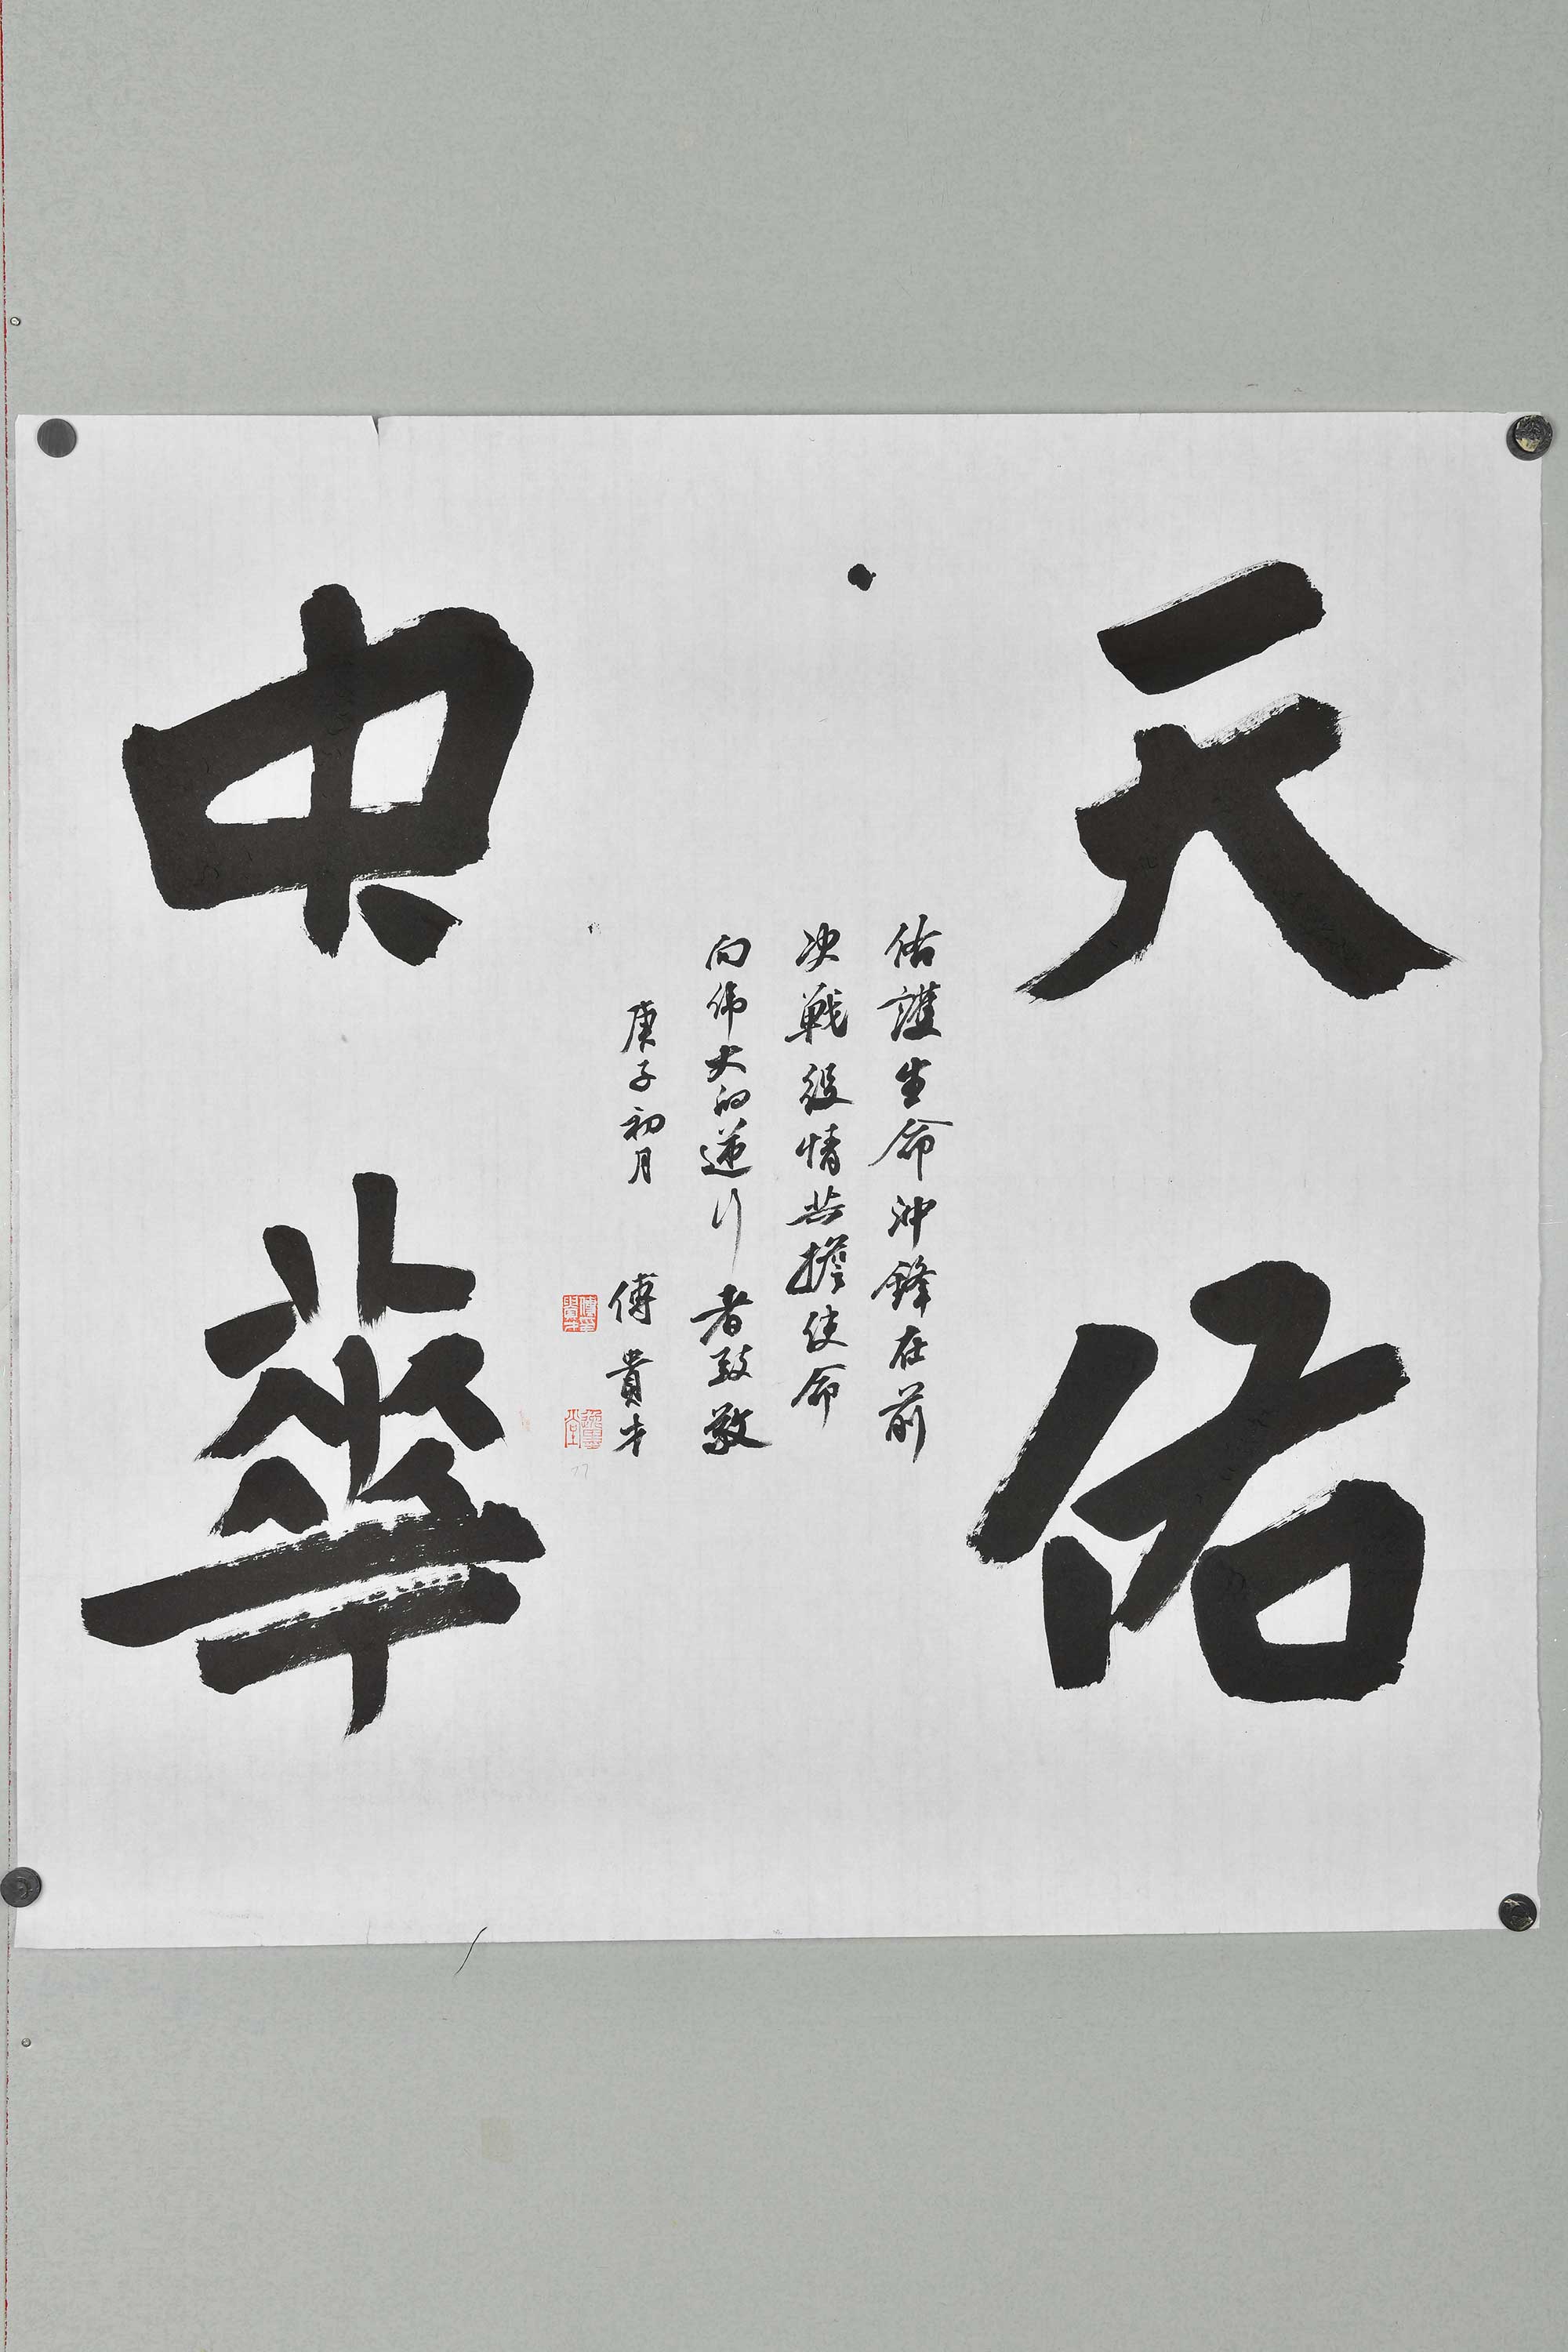 天佑
中華
佑護生命沖鋒在前
决戰役情共擔使命
向伟大的逆行者致敬
庚子初月
傅貴才